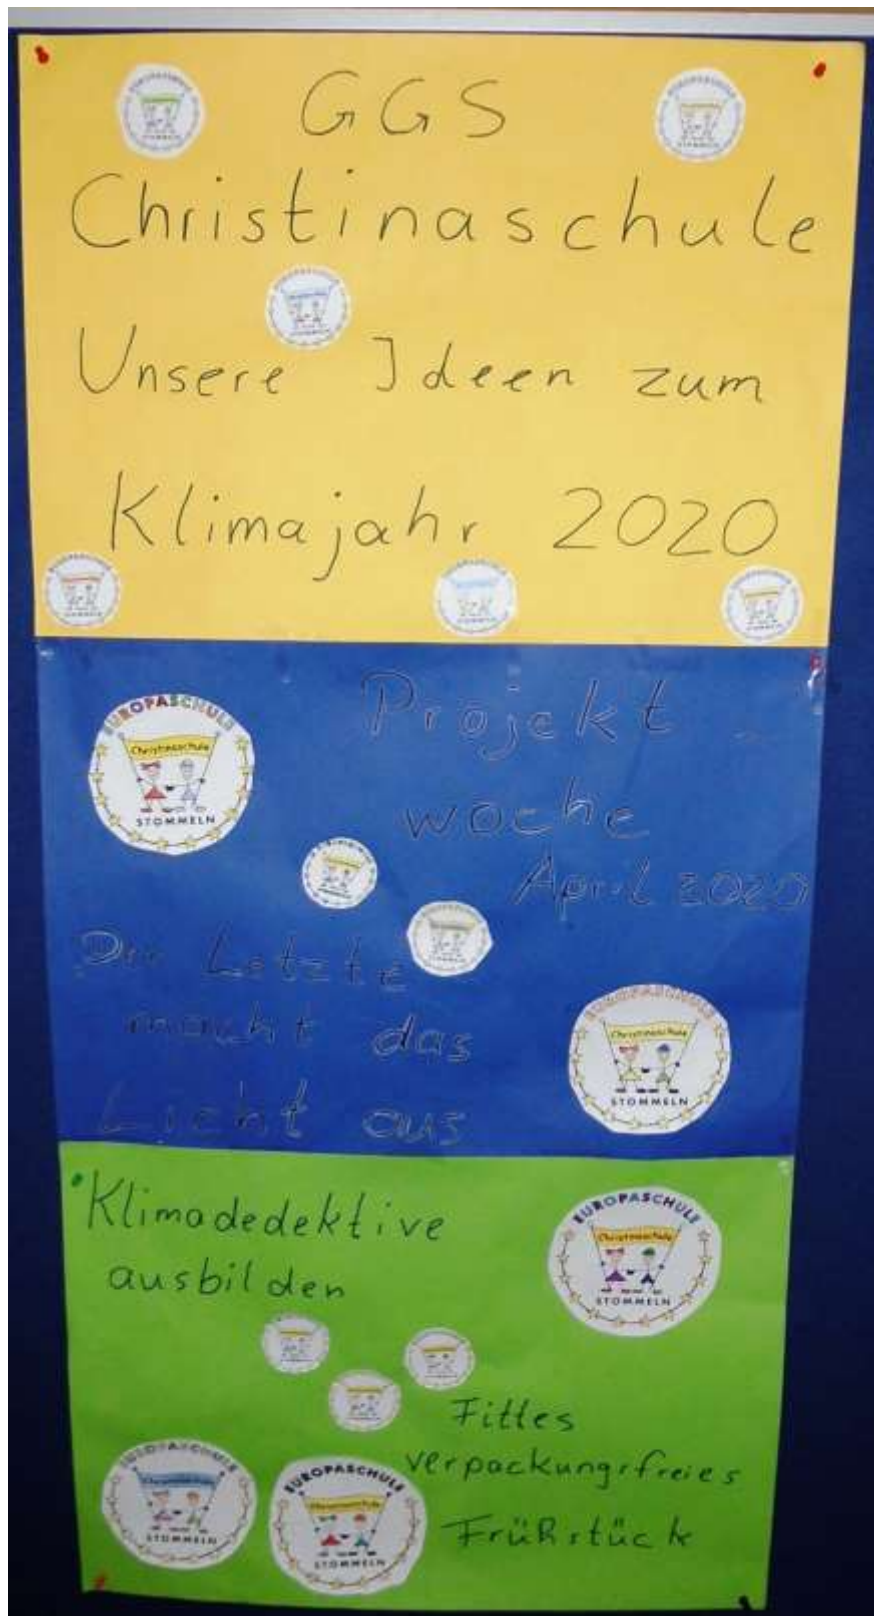 GGS
Christinaschule
Unsere Ideen zum
Klimajahr 2020
EUROPASCHULE
Christinaschule
STOMMELN
Projekt -
woche
April 2020
Der Letzte
macht das
Licht aus
EUROPASCHULE
Christinaschule
STOMMELN
Klimadedektive
ausbilden
EUROPASCHULE
Christinaschule
STOMMELN
Fittes
verpackungsfreies
Frühstück
EUROPASCHULE
Christinaschule
STOMMELN
EUROPASCHULE
Christinaschule
STOMMELN